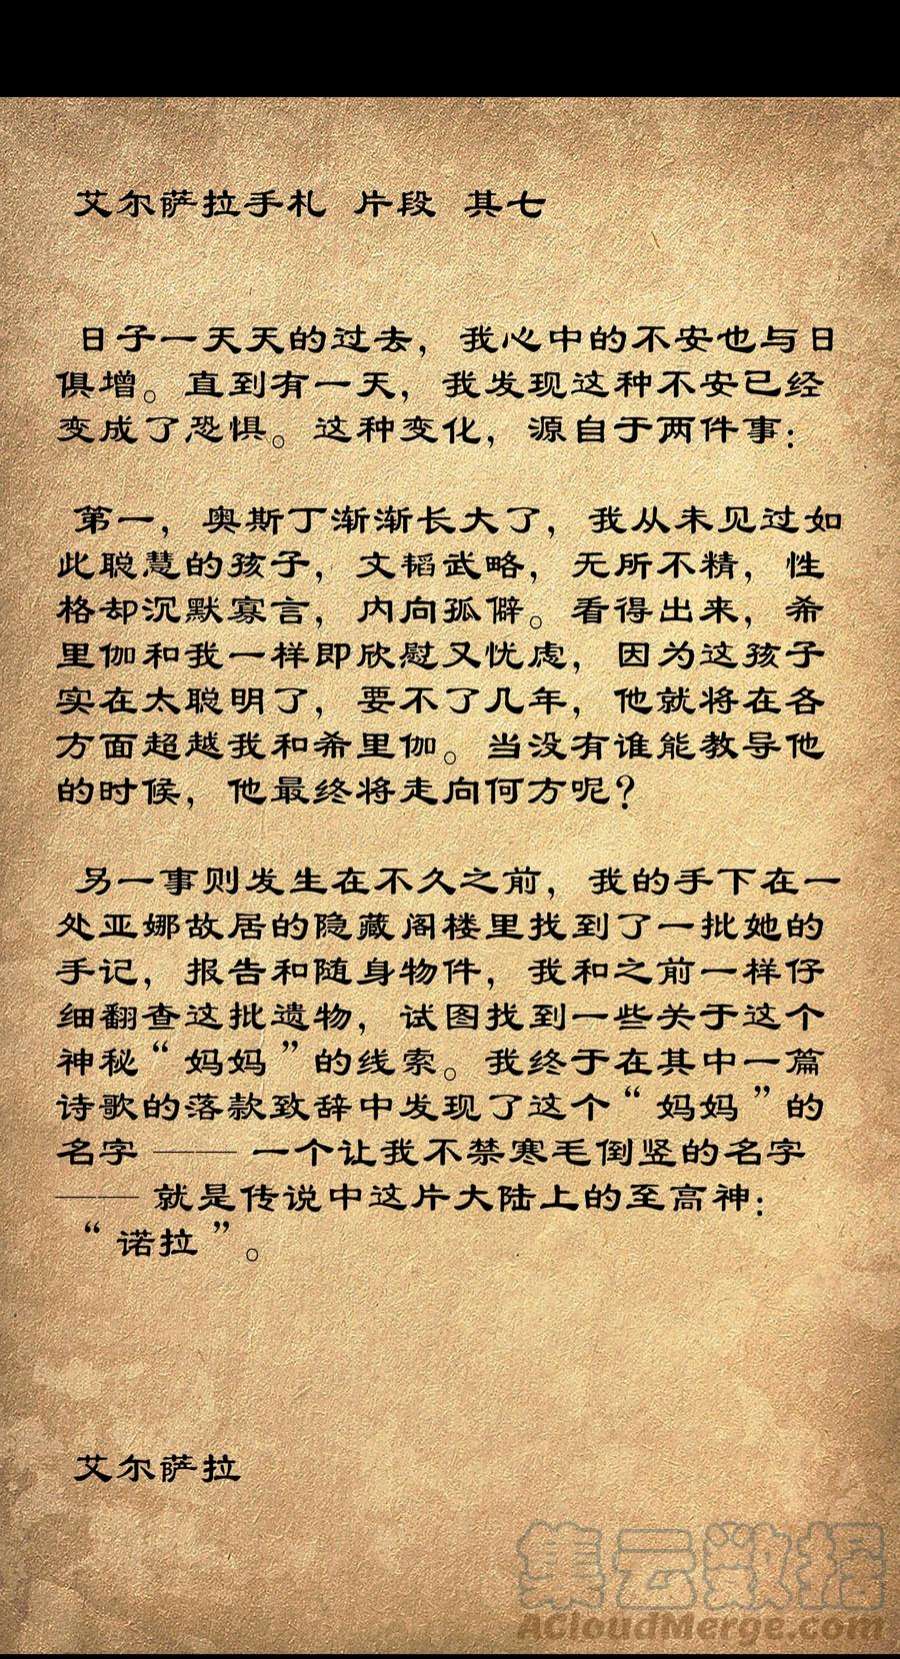 艾尔萨拉手札 片段 其七
日子一天天的过去，我心中的不安也与日
俱增。直到有一天，我发现这种不安已经
变成了恐惧。这种变化，源自于两件事：
第一，奥斯丁渐渐长大了，我从未见过如
此聪慧的孩子，文韬武略，无所不精，性
格却沉默寡言，内向孤僻。看得出来，希
里伽和我一样即欣慰又忧虑，因为这孩子
实在太聪明了，要不了几年，他就将在各
方面超越我和希里伽。当没有谁能教导他
的时候，他最终将走向何方呢？
另一事则发生在不久之前，我的手下在一
处亚娜故居的隐藏阁楼里找到了一批她的
手记，报告和随身物件，我和之前一样仔
细翻查这批遗物，试图找到一些关于这个
神秘“妈妈”的线索。我终于在其中一篇
诗歌的落款致辞中发现了这个“妈妈”的
名字 —— 一个让我不禁寒毛倒竖的名字
—— 就是传说中这片大陆上的至高神：
“诺拉”。
艾尔萨拉
集云数据
ACloudMerge.com